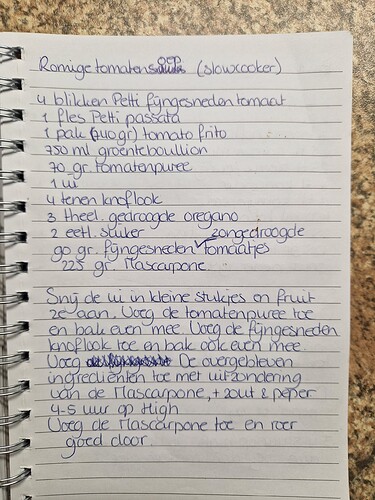 Romige tomatensoep (slowcooker)
4 blikken Petti fijngesneden tomaat
1 fles Petti passata
1 pak (340gr) tomato frito
750 ml groentebouillion
70 gr. tomatenpuree
1 ui
4 tenen knoflook
3 theel. gedroogde oregano
2 eetl. suiker zongedroogde
90 gr. fijngesneden √ tomaatjes
225 gr. Mascarpone
Snij de ui in kleine stukjes en fruit
ze aan. Voeg de tomatenpuree toe
en bak even mee. Voeg de fijngesneden
knoflook toe en bak ook even mee.
Voeg De overgebleven
ingrediënten toe met uitzondering
van de Mascarpone, + zout & peper
4-5 uur op High
Voeg de Mascarpone toe en roer
goed door.